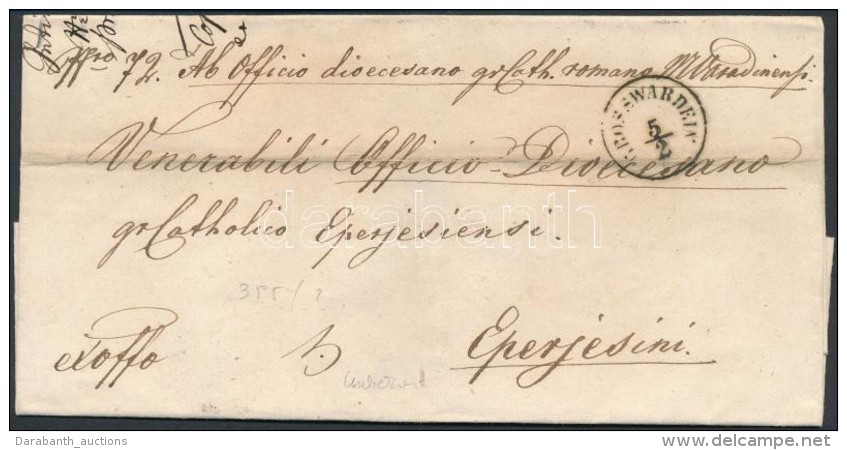 72. Ab Officio dioecesano grCath. romano MVaradinensi.
GROSSWARDEIN
5/2
Venerabili Officio Dioecesano
grCatholico Eperjesiensi.
darabanth
355/2
exoffo
Eperjesini.
Darabanth_auctions
delcampe.net